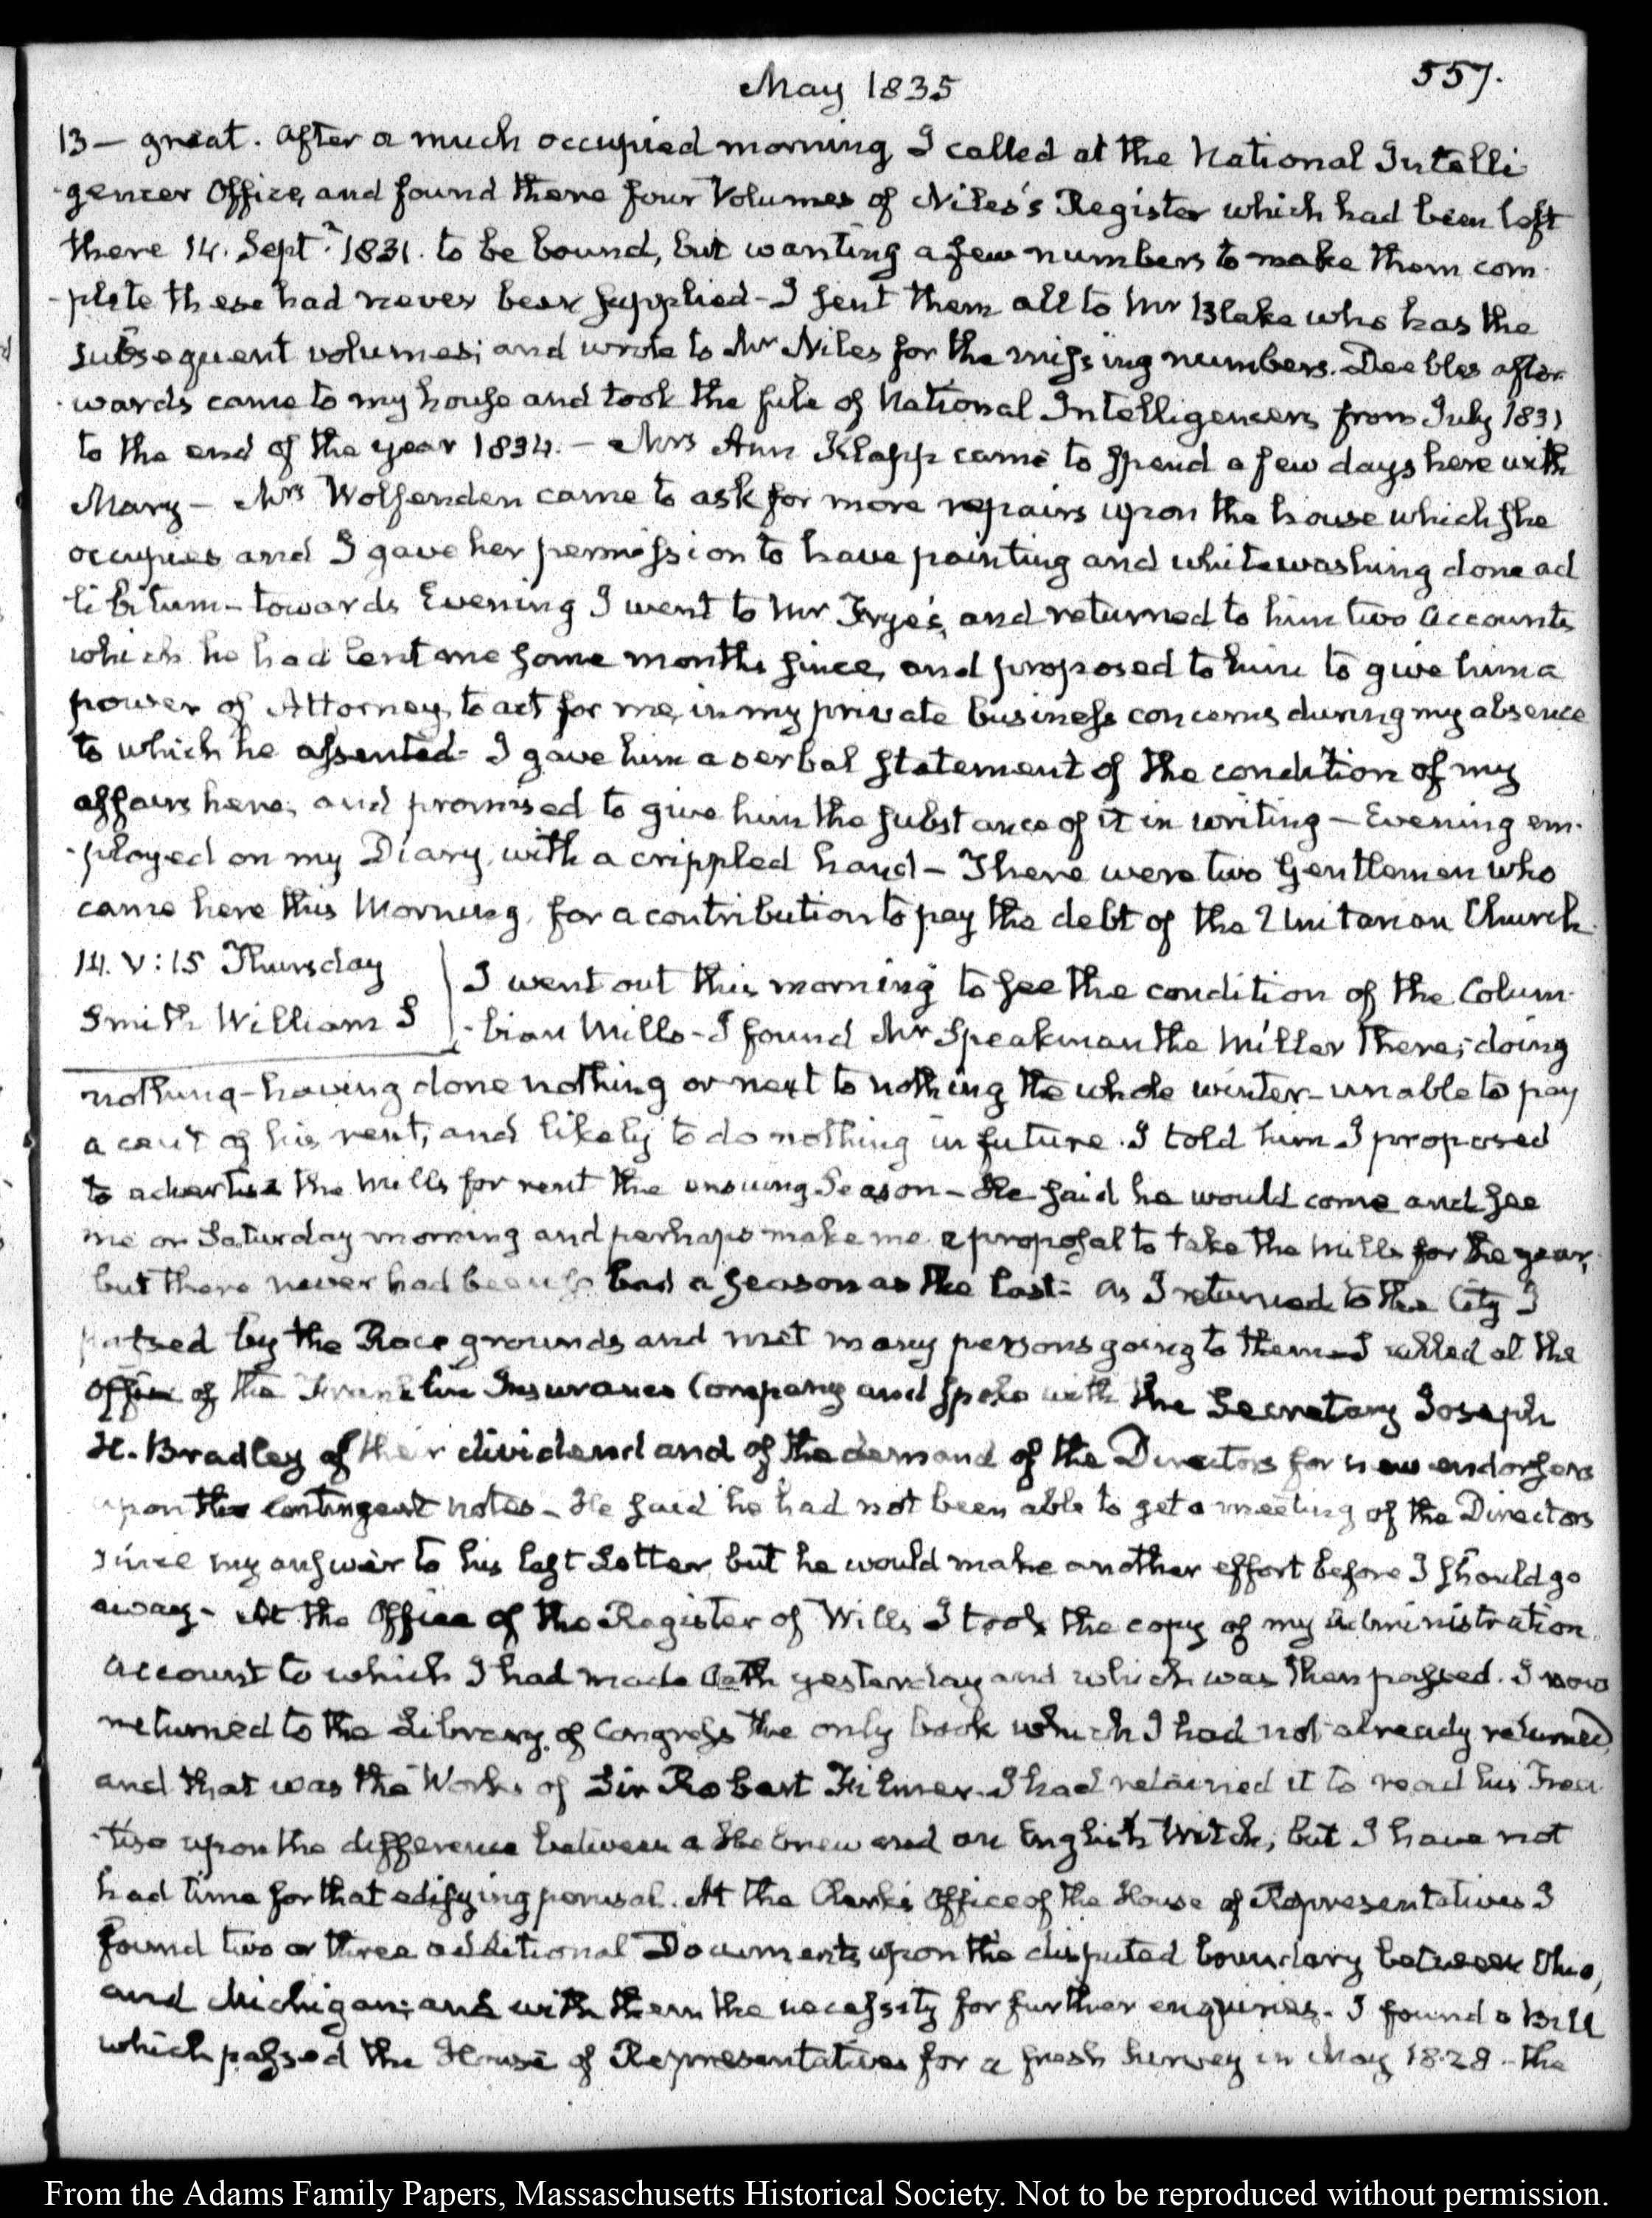 May 1835
557.
13 — great. After a much occupied morning I called at the National Intelli
-gencer Office, and found there four Volumes of Niles's Register which had been left
there 14. Septr. 1831. to be bound, but wanting a few numbers to make them com-
-plete these had never been supplied - I sent them all to Mr Blake who has the
subsequent volumes; and wrote to Mr Niles for the missing numbers. Deebles after-
-wards came to my house and took the file of National Intelligencers from July 1831
to the end of the year 1834. — Mrs Ann Klapp came to spend a few days here with
Mary — Mrs Wolfenden came to ask for more repairs upon the house which she
occupies and I gave her permission to have painting and whitewashing done ad
libitum - towards Evening I went to Mr Frye's, and returned to him two accounts
which he had lent me some months since, and proposed to him to give him a
power of Attorney, to act for me, in my private business concerns during my absence
to which he assented - I gave him a verbal statement of the condition of my
affairs here; and promised to give him the substance of it in writing — Evening em-
-ployed on my Diary, with a crippled hand — There were two Gentlemen who
came here this Morning, for a contribution to pay the debt of the Unitarian Church.
14. V: 15 Thursday
Smith William S
I went out this morning to see the condition of the Colum-
-bian Mills - I found Mr Speakman the Miller there; doing
nothing - having done nothing or next to nothing the whole winter - unable to pay
a cent of his rent, and likely to do nothing in future. I told him I proposed
to advertise the Mills for rent the ensuing Season — He said he would come and see
me on Saturday morning and perhaps make me a proposal to take the Mills for the year,
but there never had been so bad a season as the last - As I returned to the City I
passed by the Race grounds and met many persons going to them - I called at the
Office of the Franklin Insurance Company and spoke with the Secretary Joseph
H. Bradley of their dividend and of the demand of the Directors for new endorsers
upon the contingent notes - He said he had not been able to get a meeting of the Directors
since my answer to his last Letter but he would make another effort before I should go
away - At the Office of the Register of Wills I took the copy of my Administration
account to which I had made Oath yesterday and which was then passed. I now
returned to the Library of Congress the only book which I had not already returned
and that was the Works of Sir Robert Filmer. I had retained it to read his Trea-
-tise upon the difference between a Hebrew and an English Witch, but I have not
had time for that edifying perusal. At the Clerk's Office of the House of Representatives I
found two or three additional Documents upon the disputed boundary between Ohio,
and Michigan; and with them the necessity for further enquiries. I found a Bill
which passed the House of Representatives for a fresh survey in May 1828 - the
From the Adams Family Papers, Massaschusetts Historical Society. Not to be reproduced without permission.